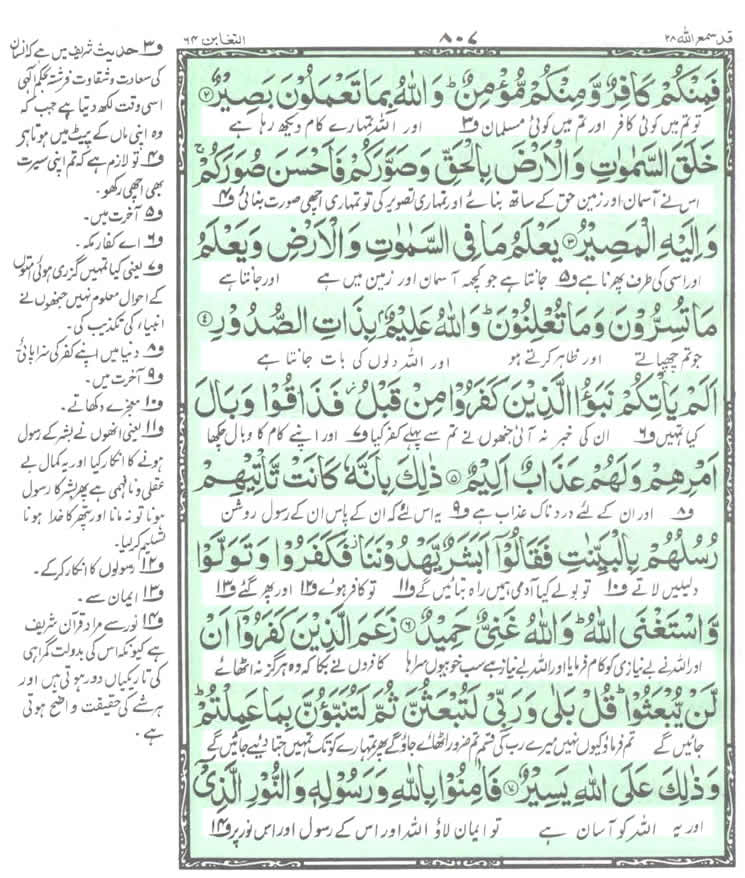 قد سمع اللہ ۲۸
۸۰۷
التغابن ۶۴
فَمِنْكُمْ كَافِرٌ وَّمِنْكُمْ مُّؤْمِنٌ ؕ وَاللّٰهُ بِمَا تَعْمَلُوْنَ بَصِيْرٌ ۝۲
تو تم میں کوئی کافر اور تم میں کوئی مسلمان ف۳ اور اللہ تمہارے کام دیکھ رہا ہے
خَلَقَ السَّمٰوٰتِ وَالْاَرْضَ بِالْحَقِّ وَصَوَّرَكُمْ فَاَحْسَنَ صُوَرَكُمْ ۚ
اس نے آسمان اور زمین حق کے ساتھ بنائے اور تمہاری تصویر کی تو تمہاری اچھی صورت بنائی ف۴
وَاِلَيْهِ الْمَصِيْرُ ۝۳ يَعْلَمُ مَا فِى السَّمٰوٰتِ وَالْاَرْضِ وَيَعْلَمُ
اور اسی کی طرف پھرنا ہے ف۵ جانتا ہے جو کچھ آسمان اور زمین میں ہے اور جانتا ہے
مَا تُسِرُّوْنَ وَمَا تُعْلِنُوْنَ ؕ وَاللّٰهُ عَلِيْمٌۢ بِذَاتِ الصُّدُوْرِ ۝۴
جو تم چھپاتے اور ظاہر کرتے ہو اور اللہ دلوں کی بات جانتا ہے
اَلَمْ يَاْتِكُمْ نَبَؤُا الَّذِيْنَ كَفَرُوْا مِنْ قَبْلُ ؗ فَذَاقُوْا وَبَالَ
کیا تمہیں ف۶ ان کی خبر نہ آئی جنھوں نے تم سے پہلے کفر کیا ف۷ اور اپنے کام کا وبال چکھا
اَمْرِهِمْ وَلَهُمْ عَذَابٌ اَلِيْمٌ ۝۵ ذٰلِكَ بِاَنَّهٗ كَانَتْ تَّاْتِيْهِمْ
ف۸ اور ان کے لئے دردناک عذاب ہے ف۹ یہ اس لئے کہ ان کے پاس ان کے رسول روشن
رُسُلُهُمْ بِالْبَيِّنٰتِ فَقَالُوْۤا اَبَشَرٌ يَّهْدُوْنَنَا ؗ فَكَفَرُوْا وَتَوَلَّوْا
دلیلیں لاتے ف۱۰ تو بولے کیا آدمی ہمیں راہ بتائیں گے ف۱۱ تو کافر ہوئے ف۱۲ اور پھر گئے ف۱۳
وَّاسْتَغْنَى اللّٰهُ ؕ وَاللّٰهُ غَنِىٌّ حَمِيْدٌ ۝۶ زَعَمَ الَّذِيْنَ كَفَرُوْۤا اَنْ
اور اللہ نے بے نیازی کو کام فرمایا اور اللہ بے نیاز ہے سب خوبیوں سراہا کافروں نے بکا کہ وہ ہرگز نہ اٹھائے
لَّنْ يُّبْعَثُوْا ؕ قُلْ بَلٰى وَرَبِّىْ لَتُبْعَثُنَّ ثُمَّ لَتُنَبَّؤُنَّ بِمَا عَمِلْتُمْ ؕ
جائیں گے تم فرماؤ کیوں نہیں میرے رب کی قسم تم ضرور اٹھائے جاؤ گے پھر تمہارے کوتک تمہیں جتا دیے جائیں گے
وَذٰلِكَ عَلَى اللّٰهِ يَسِيْرٌ ۝۷ فَاٰمِنُوْا بِاللّٰهِ وَرَسُوْلِهٖ وَالنُّوْرِ الَّذِىْۤ
اور یہ اللہ کو آسان ہے تو ایمان لاؤ اللہ اور اس کے رسول اور اس نور پر ف۱۴
ف۳ حدیث شریف میں ہے کہ انسان
کی سعادت و شقاوت فرشتہ بحکم الٰہی
اسی وقت لکھ دیتا ہے جب کہ
وہ اپنی ماں کے پیٹ میں ہوتا ہے
ف۴ تو لازم ہے کہ تم اپنی سیرت
بھی اچھی رکھو۔
ف۵ آخرت میں۔
ف۶ اے کفار مکہ۔
ف۷ یعنی کیا تمہیں گزری ہوئی امتوں
کے احوال معلوم نہیں جنھوں نے
انبیاء کی تکذیب کی۔
ف۸ دنیا میں اپنے کفر کی سزا پائی
ف۹ آخرت میں۔
ف۱۰ معجزے دکھاتے۔
ف۱۱ یعنی انھوں نے بشر کے رسول
ہونے کا انکار کیا اور یہ کمال بے
عقلی و نافہمی ہے پھر بشر کا رسول
ہونا تو نہ مانا اور پتھر کا خدا ہونا
تسلیم کر لیا۔
ف۱۲ رسولوں کا انکار کر کے۔
ف۱۳ ایمان سے۔
ف۱۴ نور سے مراد قرآن شریف
ہے کیونکہ اس کی بدولت گمراہی
کی تاریکیاں دور ہوتی ہیں اور
ہر شے کی حقیقت واضح ہوتی
ہے۔